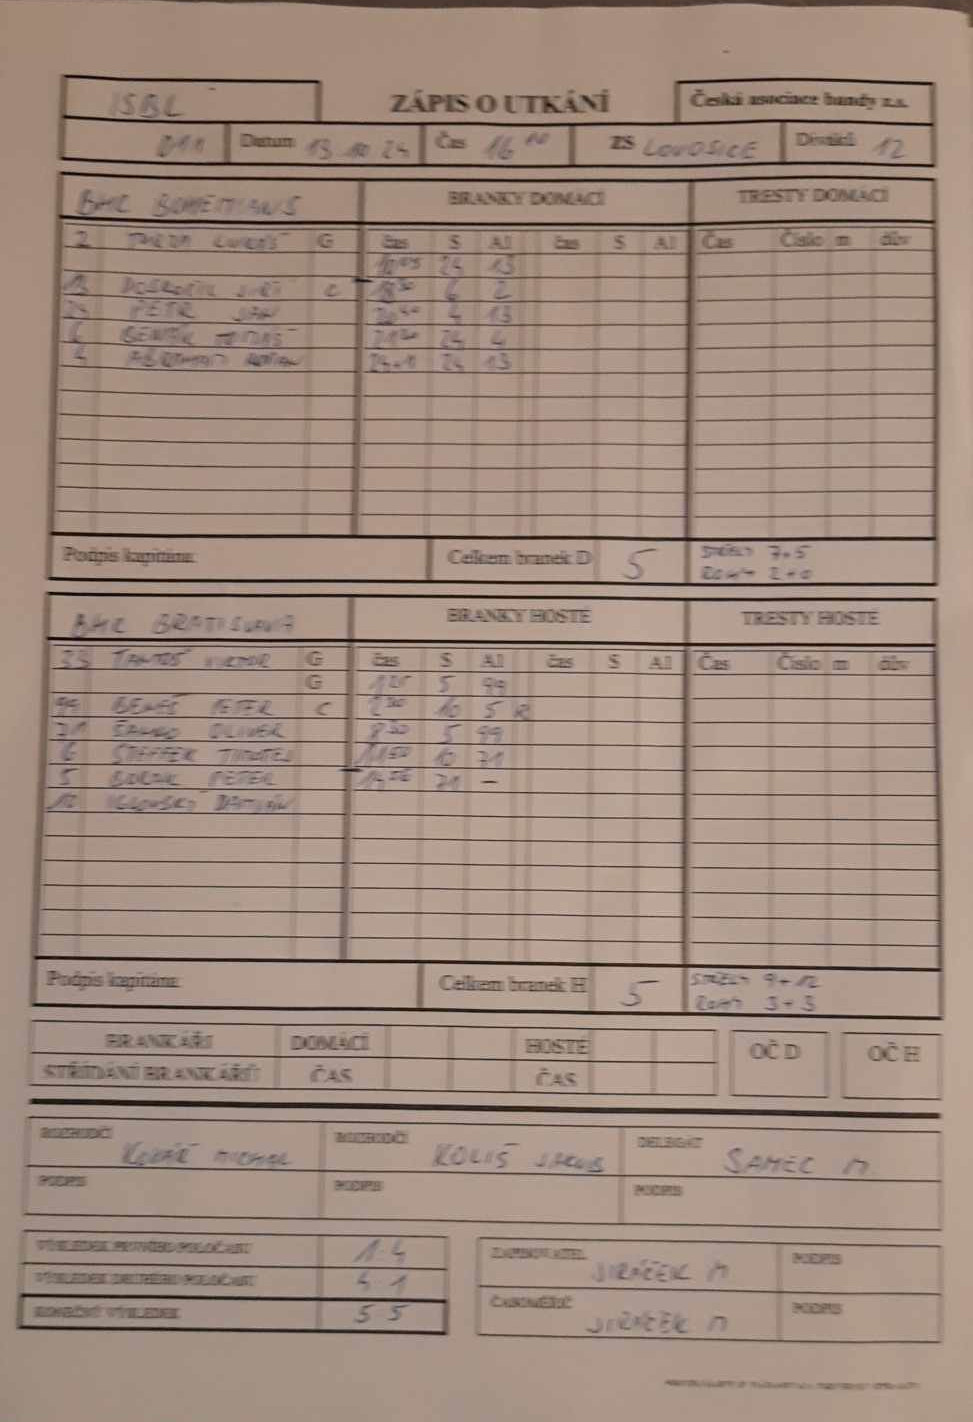 ISBL
ZÁPIS O UTKÁNÍ
Česká asociace bandy z.s.
011 Datum 13 10 24 Čas 16 00 ZS LOVOSICE Diváků 12
BHC BOHEMIANS BRANKY DOMÁCÍ TRESTY DOMÁCÍ
2 LUKÁŠ G čas S A1 čas S A1 Čas Číslo m dův
24 13
13 JIŘÍ C 18 30 6 2
24 PETR JAN 4 13
6 TOMÁŠ 24 4
4 24 13
Podpis kapitána Celkem branek D 5 STŘELY 7+5
ROHY 2+0
BHC BRATISLAVA BRANKY HOSTÉ TRESTY HOSTÉ
33 VIKTOR G čas S A1 čas S A1 Čas Číslo m dův
G 5 99
99 BENEŠ PETER C 10 5 R
71 OLIVER 8 30 5 99
6 STEFFEK TIMOTEJ 11 50 10 71
5 PETER 71 -
10 DAMIÁN
Podpis kapitána Celkem branek H 5 STŘELY 9+12
ROHY 3+3
BRANKÁŘI DOMÁCÍ HOSTÉ OČ D OČ H
STŘÍDÁNÍ BRANKÁŘŮ ČAS ČAS
ROZHODČÍ ROZHODČÍ DELEGÁT
MICHAL KOLIŠ JAKUB SAMEC M.
PODPIS PODPIS PODPIS
VÝSLEDEK PRVNÍHO POLOČASU 1 4
VÝSLEDEK DRUHÉHO POLOČASU 4 1
KONEČNÝ VÝSLEDEK 5 5
ZAPISOVATEL JIRÁČEK M PODPIS
ČASOMĚŘIČ JIRÁČEK M PODPIS